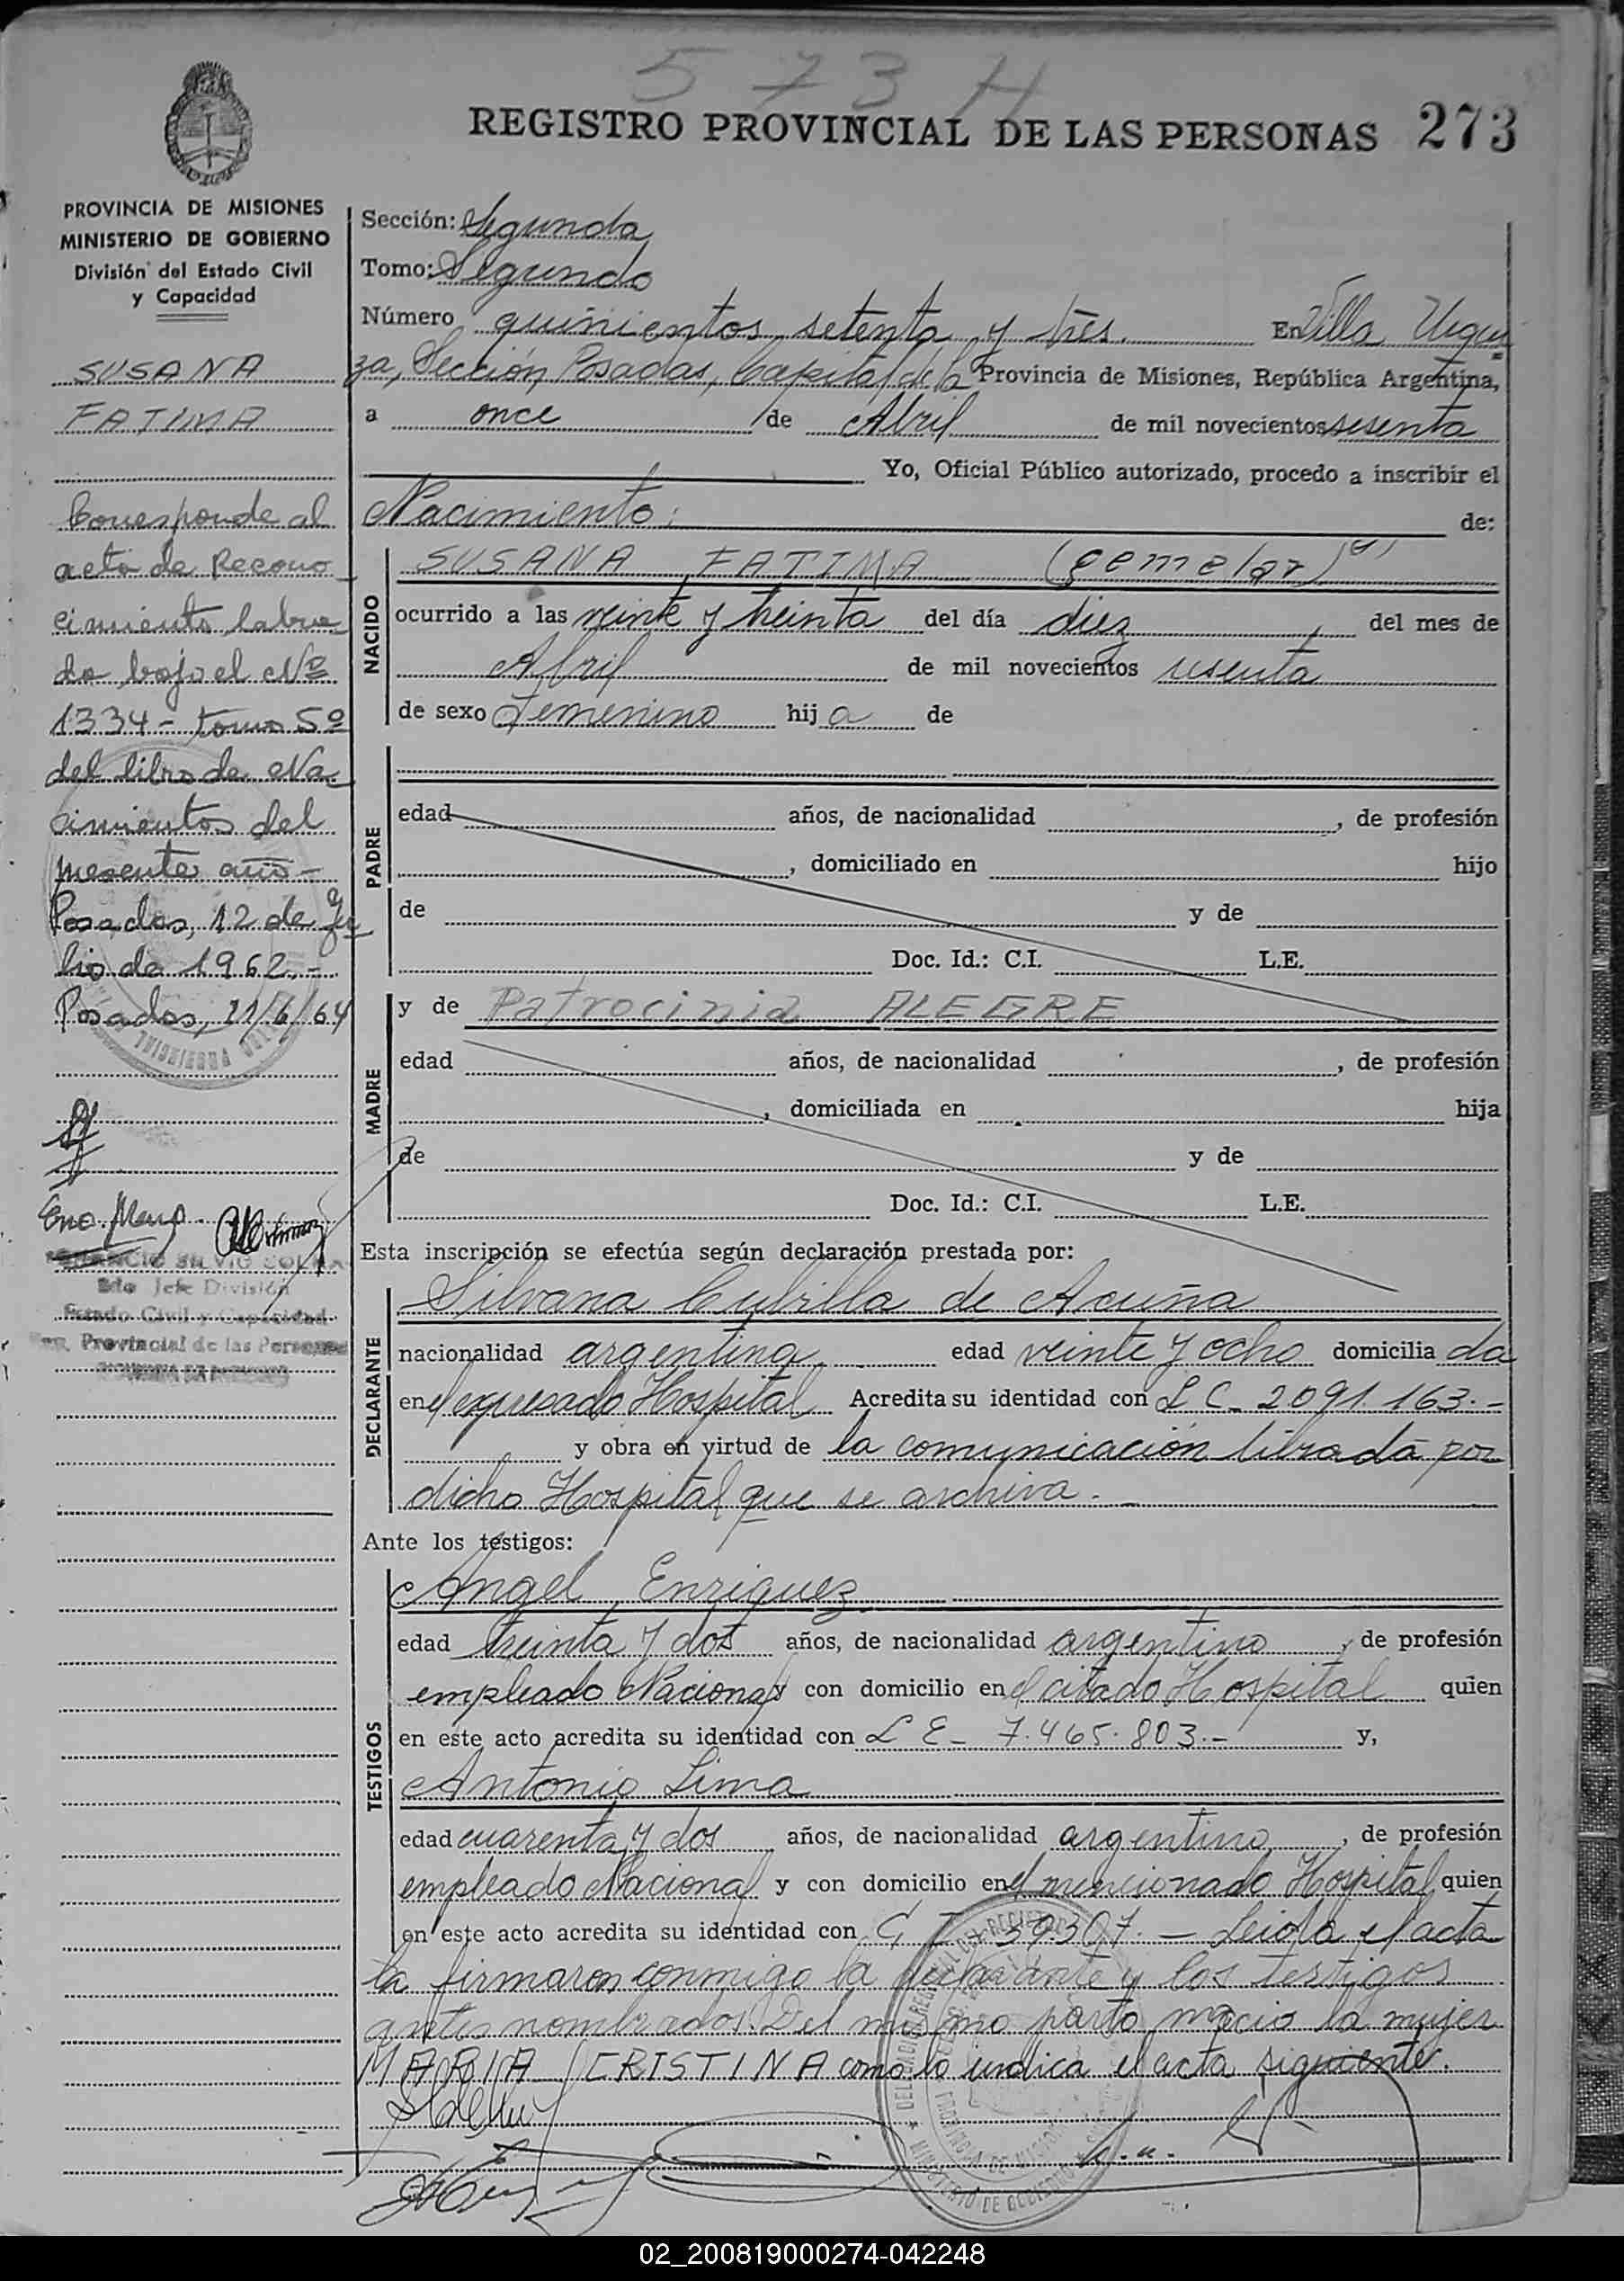 573 H
REGISTRO PROVINCIAL DE LAS PERSONAS 273
PROVINCIA DE MISIONES
MINISTERIO DE GOBIERNO
División del Estado Civil
y Capacidad
SUSANA
FATIMA
Corresponde al
acta de Recono
cimiento labra
da bajo el Nº
1334 - tomo 5º
del libro de Na
cimientos del
presente año -
Posadas, 12 de Ju
lio de 1962.-
Posadas, 21/6/64
2do Jefe División
Estado Civil y Capacidad
Provincial de las Personas
Sección: Segunda
Tomo: Segundo
Número quinientos setenta y tres. En Villa Urqui
za, Sección Posadas, Capital de la Provincia de Misiones, República Argentina,
a once de Abril de mil novecientos sesenta
Yo, Oficial Público autorizado, procedo a inscribir el
Nacimiento: de:
NACIDO
SUSANA FATIMA (gemelar)
ocurrido a las veinte y treinta del día diez, del mes de
Abril de mil novecientos sesenta
de sexo Femenino hija de
PADRE
edad años, de nacionalidad , de profesión
, domiciliado en hijo
de y de
Doc. Id.: C.I. L.E.
MADRE
y de Patrocinia ALEGRE
edad años, de nacionalidad , de profesión
, domiciliada en hija
de y de
Doc. Id.: C.I. L.E.
Esta inscripción se efectúa según declaración prestada por:
DECLARANTE
Silvana Cubilla de Acuña
nacionalidad argentina, edad veinte y ocho domiciliada
en el expresado Hospital Acredita su identidad con L C - 2091.163.-
y obra en virtud de la comunicación librada por
dicho Hospital que se archiva.-
Ante los testigos:
TESTIGOS
Angel Enriquez
edad treinta y dos años, de nacionalidad argentino, de profesión
empleado Nacional y con domicilio en el citado Hospital quien
en este acto acredita su identidad con L E - 7.465.803.- y,
Antonio Lima
edad cuarenta y dos años, de nacionalidad argentino, de profesión
empleado Nacional y con domicilio en el mencionado Hospital quien
en este acto acredita su identidad con C I - 39307.- Leida el acta
la firmaron conmigo la declarante y los testigos
antes nombrados. Del mismo parto nació la mujer
MARIA CRISTINA como lo indica el acta siguiente.
02_200819000274-042248